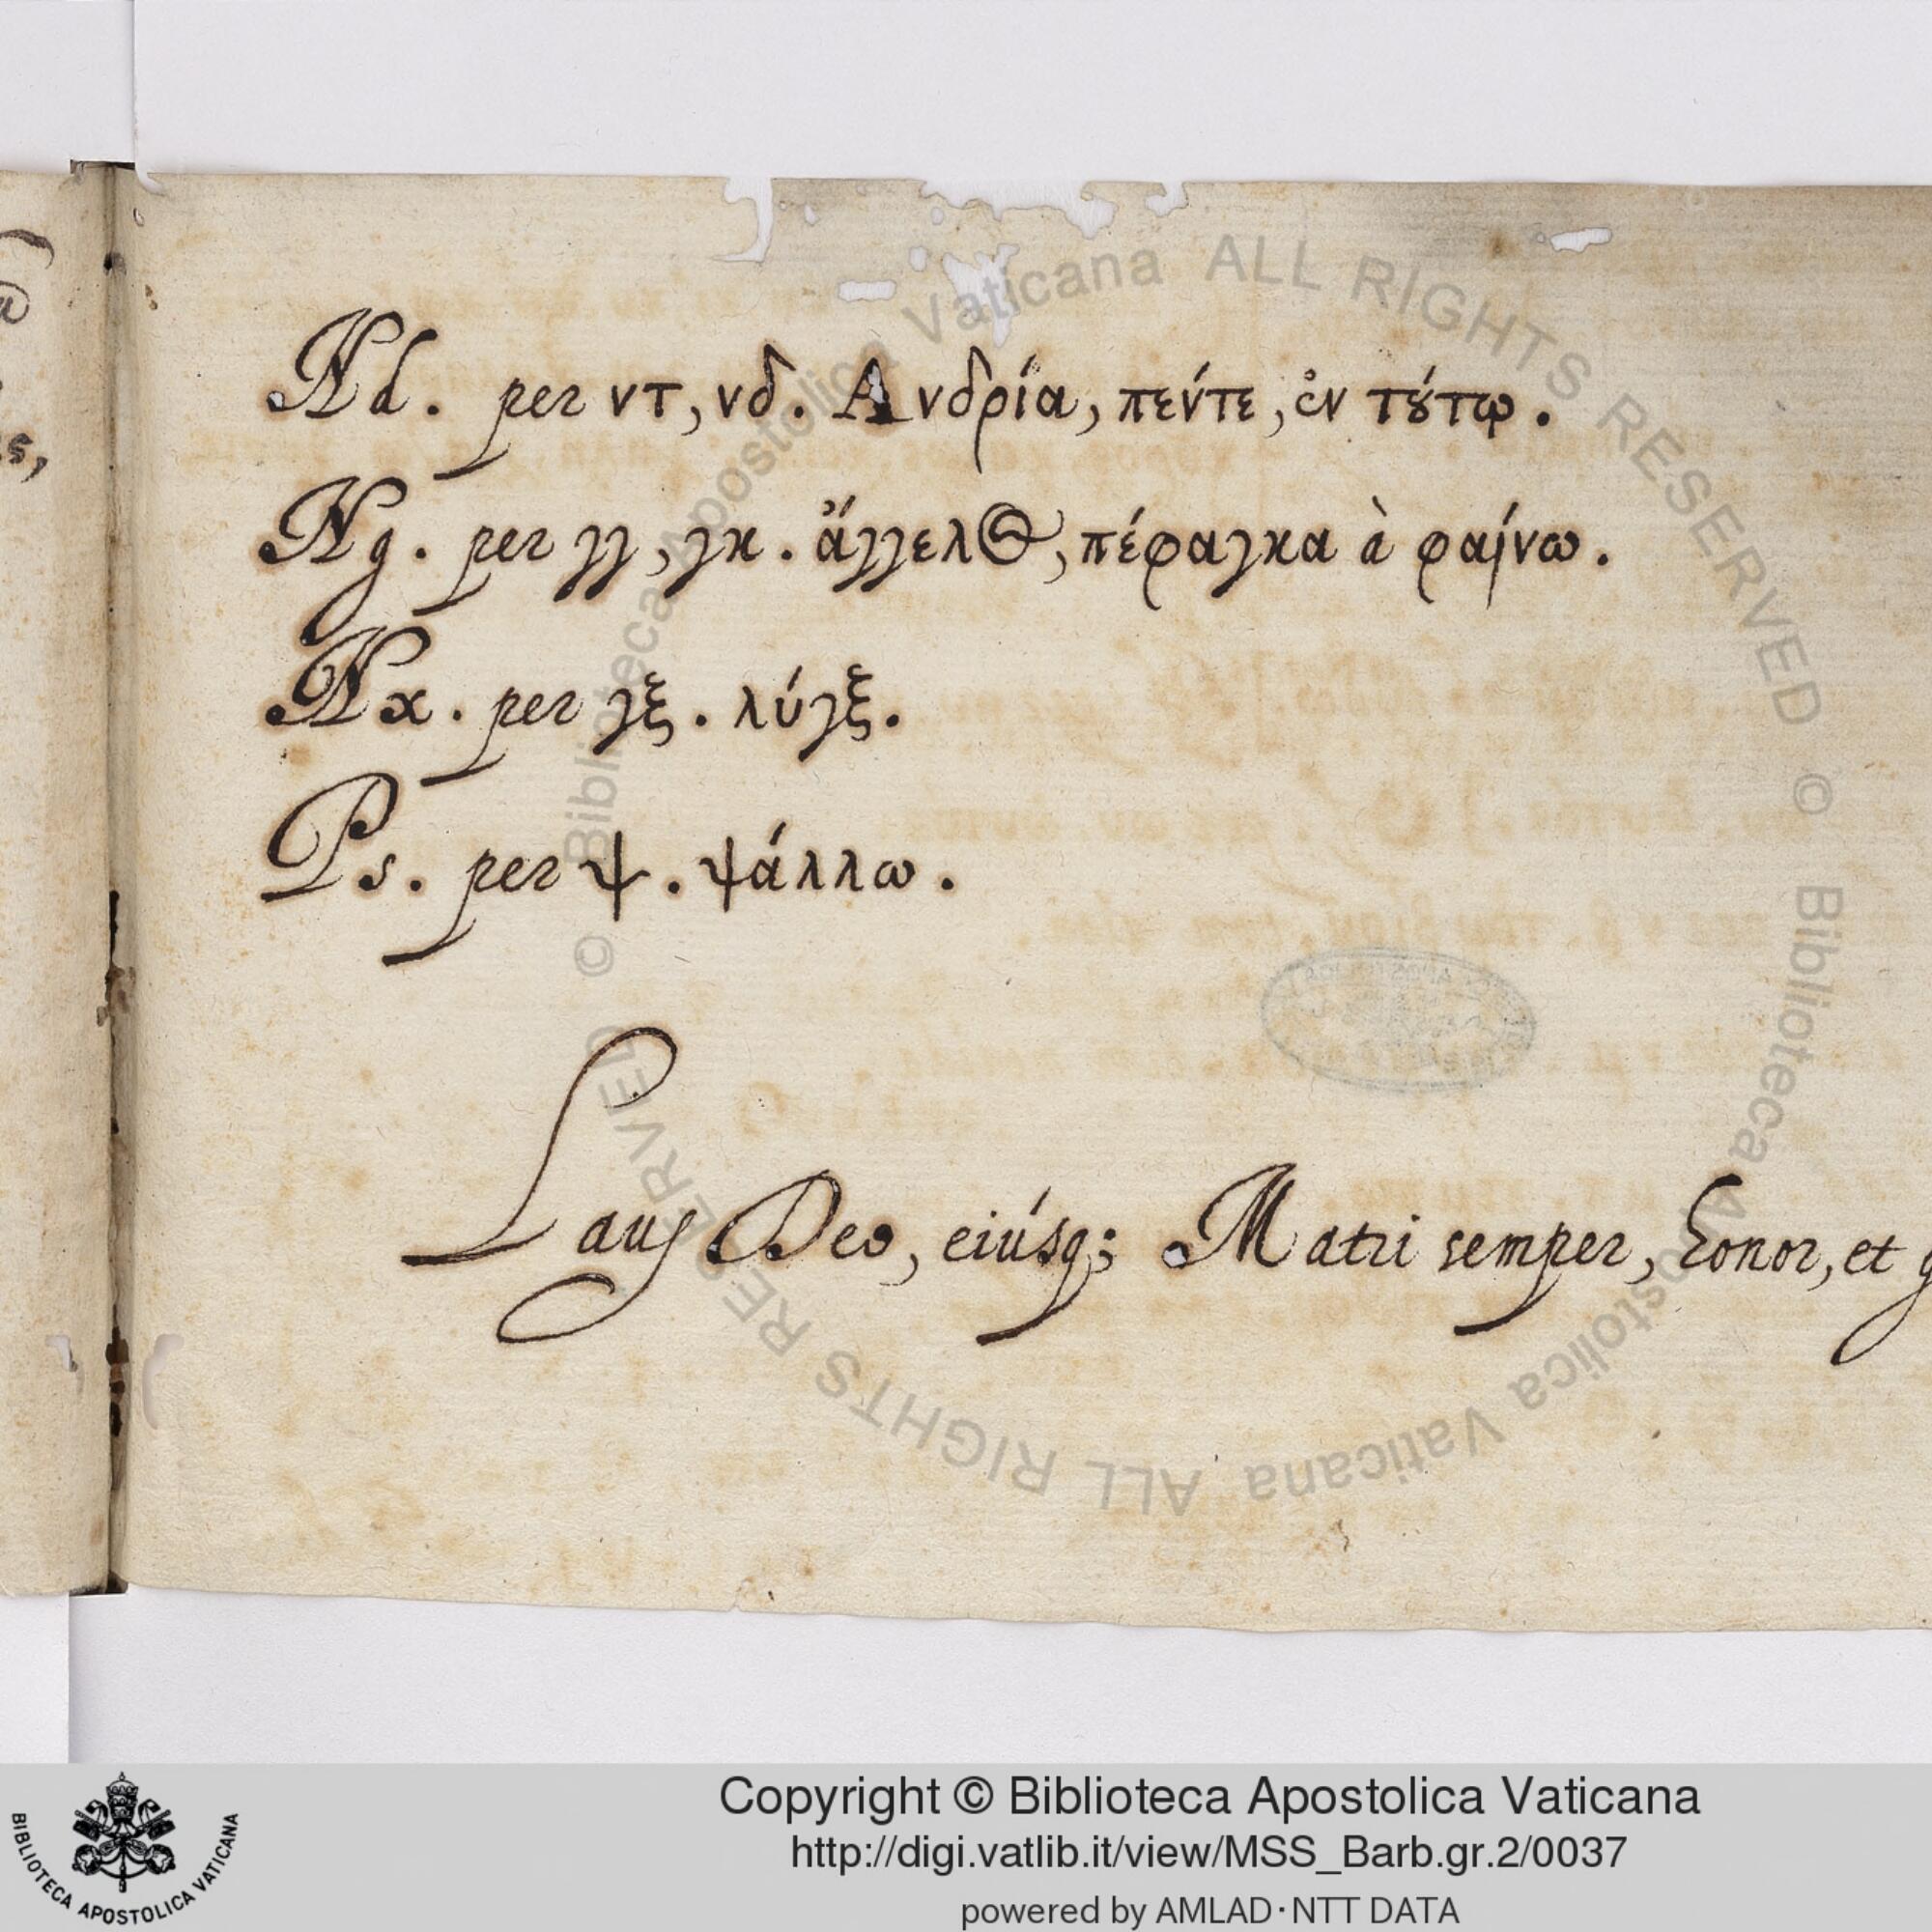 Nd. per ντ, νδ. Ανδρία, πεντε, ἐν τȣ́τῳ.
Ng. per γγ, γκ. ἄγγελος, πέφαγκα à φαίνω.
Nx. per γξ. λύγξ.
Ps. per ψ. ψάλλω.
Laus Deo, eiúsq; Matri semper, honor, et g
s,
© Biblioteca Apostolica Vaticana ALL RIGHTS RESERVED © Biblioteca Apostolica Vaticana ALL RIGHTS RESERVED
BIBLIOTECA APOSTOLICA VATICANA
Copyright © Biblioteca Apostolica Vaticana
http://digi.vatlib.it/view/MSS_Barb.gr.2/0037
powered by AMLAD·NTT DATA